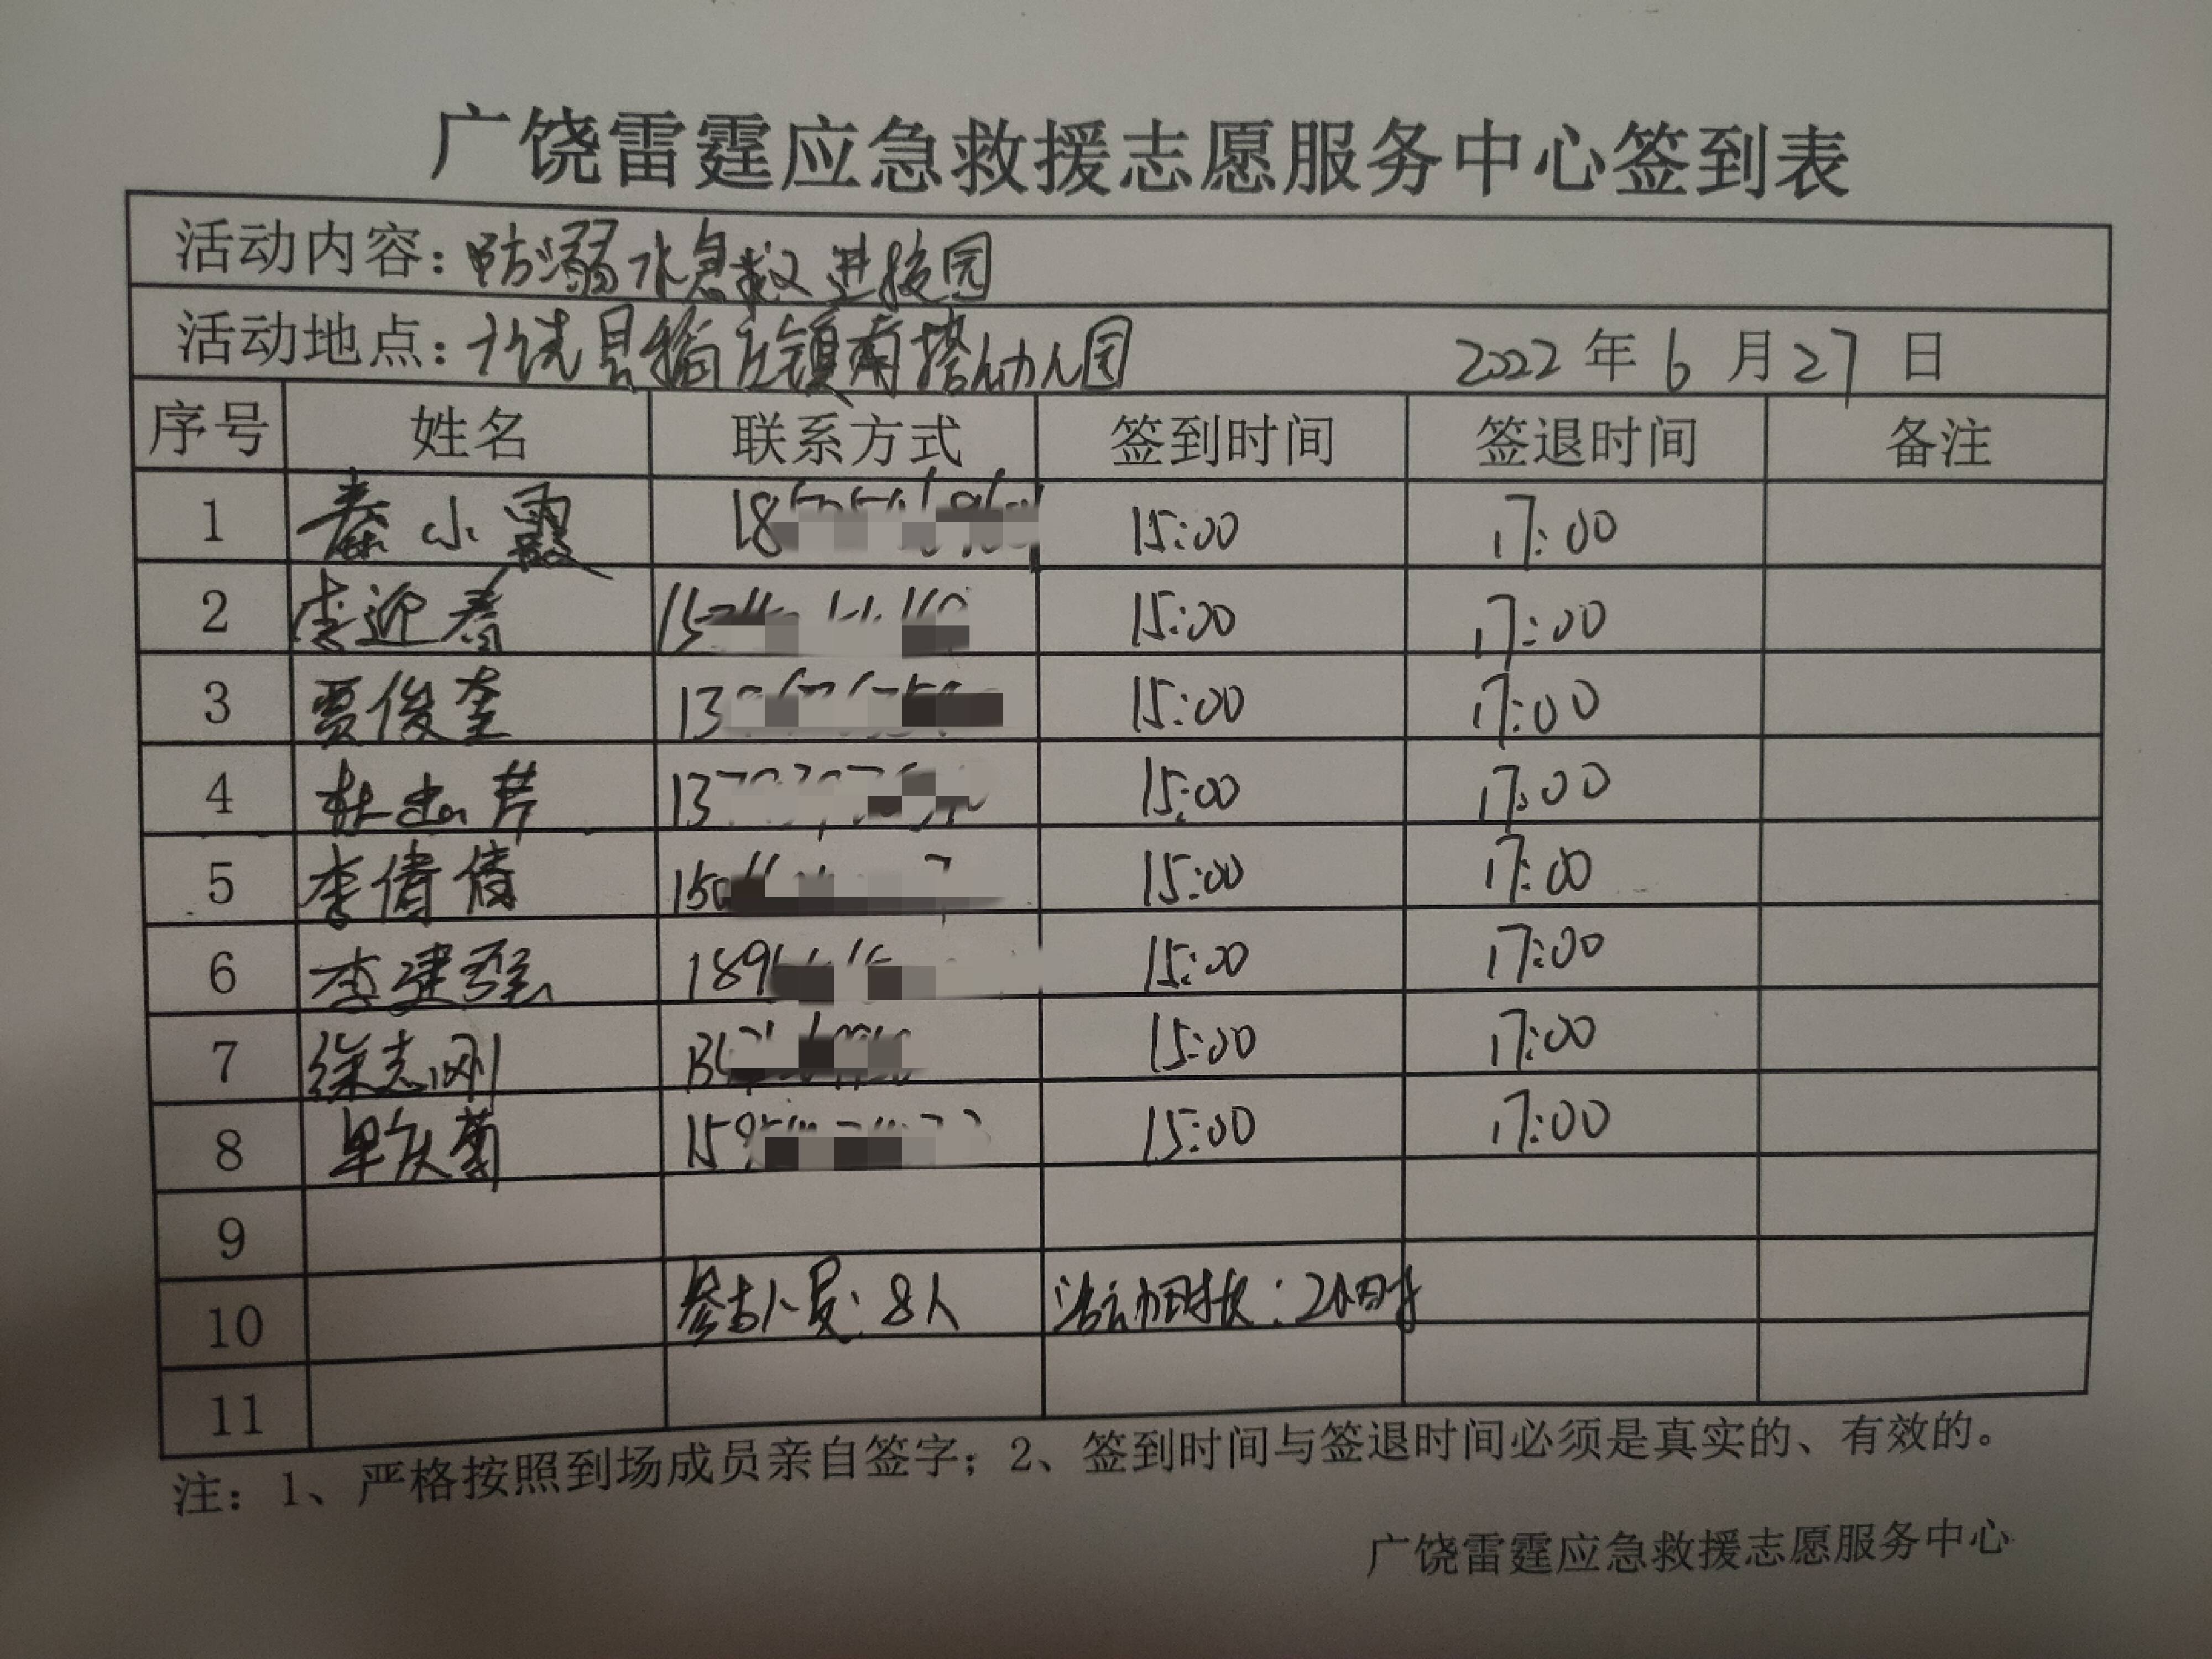 广饶雷霆应急救援志愿服务中心签到表
活动内容：防溺水急救进校园
活动地点：广饶县稻庄镇南塔幼儿园 2022年6月27日
序号 姓名 联系方式 签到时间 签退时间 备注
1 秦小霞 18 15:00 17:00
2 李迎春 15 15:00 17:00
3 贾俊奎 13 15:00 17:00
4 13 15:00 17:00
5 李倩倩 150 15:00 17:00
6 李建强 189 15:00 17:00
7 徐志刚 15:00 17:00
8 159 15:00 17:00
9
10 参加人员：8人 活动时长：2小时
11
注：1、严格按照到场成员亲自签字；2、签到时间与签退时间必须是真实的、有效的。
广饶雷霆应急救援志愿服务中心